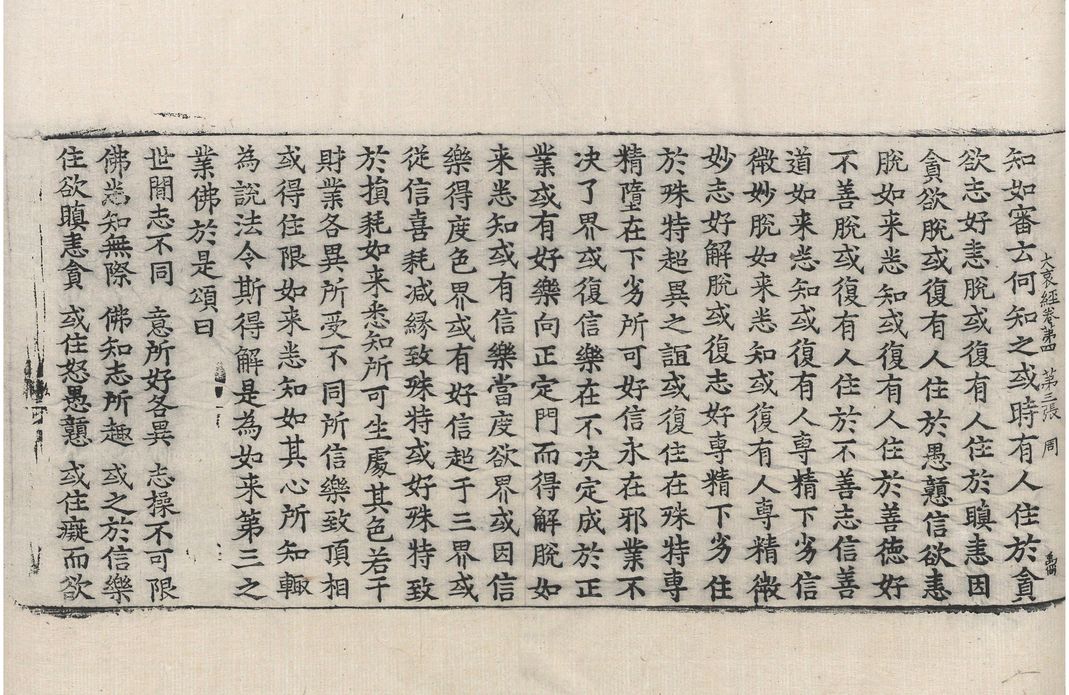 大哀經卷第四　第三張　周
知如審云何知之或時有人住於貪
欲志好恚脫或復有人住於瞋恚因
貪欲脫或復有人住於愚戇信欲恚
脫如来悉知或復有人住於善徳好
不善脫或復有人住於不善志信善
道如来悉知或復有人専精下劣信
微妙脫如来悉知或復有人専精微
妙志好解脫或復志好専精下劣住
於殊特超異之誼或復住在殊特専
精墮在下劣所可好信永在邪業不
决了界或復信樂在不决定成於正
業或有好樂向正定門而得解脫如
来悉知或有信樂當度欲界或因信
樂得度色界或有好信超于三界或
從信喜耗减緣致殊特或好殊特致
於損耗如来悉知所可生處其色若干
財業各異所受不同所信樂致頂相
或得住限如来悉知如其心所知輙
為說法令斯得解是為如来第三之
業佛於是頌曰
世間志不同　意所好各異　志操不可限
佛悉知無際　佛知志所趣　或之於信樂
住欲瞋恚貪　或住怒愚戇　或住癡而欲